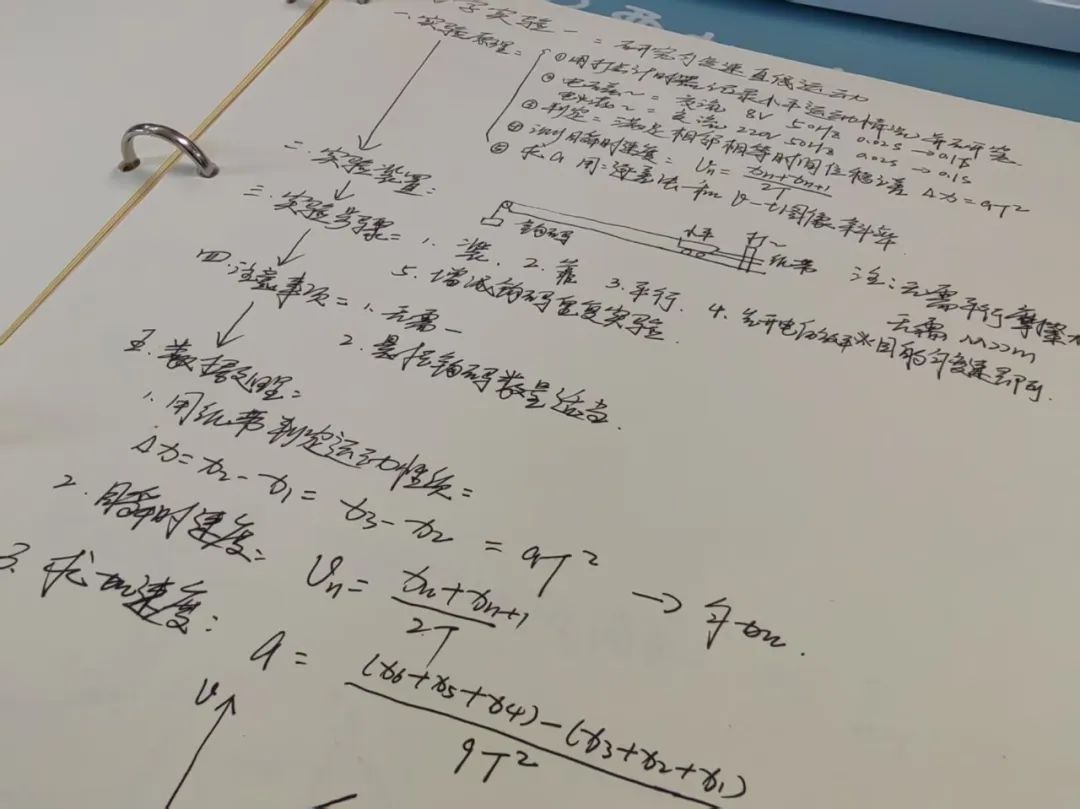 学实验一：研究匀变速直线运动
一、实验原理：①用打点计时器记录水平运动情况，并研究
②电磁~：交流 8V 50Hz 0.02s → 0.1s
电火花~：交流 220V 50Hz 0.02s → 0.1s
③判定：满足相邻相等时间位移之差 Δx=aT²
④测瞬时速度：Vn=(xn+xn+1)/2T
⑤求a 用：逐差法和v-t图像斜率
二、实验装置：
钩码 小车 打~ 纸带
注：无需平衡摩擦力
无需M>>m
三、实验步骤：1.装. 2.靠 3.平行. 4.先开电后放车
5.增减钩码重复实验.
四、注意事项：1.无需一
2.悬挂钩码数量适当.
五、数据处理：
1.用纸带判定运动性质：
Δx=x2-x1=x3-x2=aT²
2.瞬时速度：Vn=(xn+xn+1)/2T →
3.求加速度：a=((x6+x5+x4)-(x3+x2+x1))/9T²
v